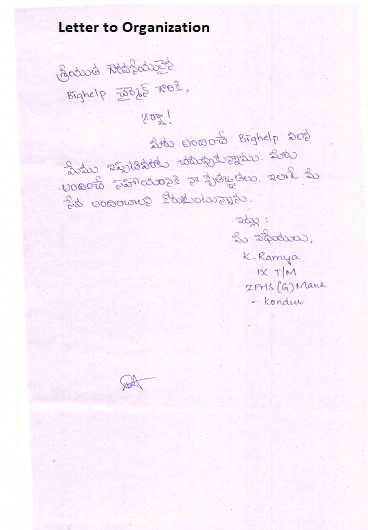 Letter to Organization
శ్రీయుత గౌరవనీయులైన
Bighelp ఛైర్మన్ గారికి,
ఆర్యా!
మీరు అందించే Bighelp వలన
మేము ఇప్పటివరకు చదువుకున్నాము. మీరు
అందించే సహాయానికి నా కృతజ్ఞతలు. ఇలాగే మీ
సేవ అందించాలని కోరుకుంటున్నాను.
ఇట్లు :
మీ విధేయులు,
K. Ramya
IX T/M
ZPHS (G) Mana
- Kondur